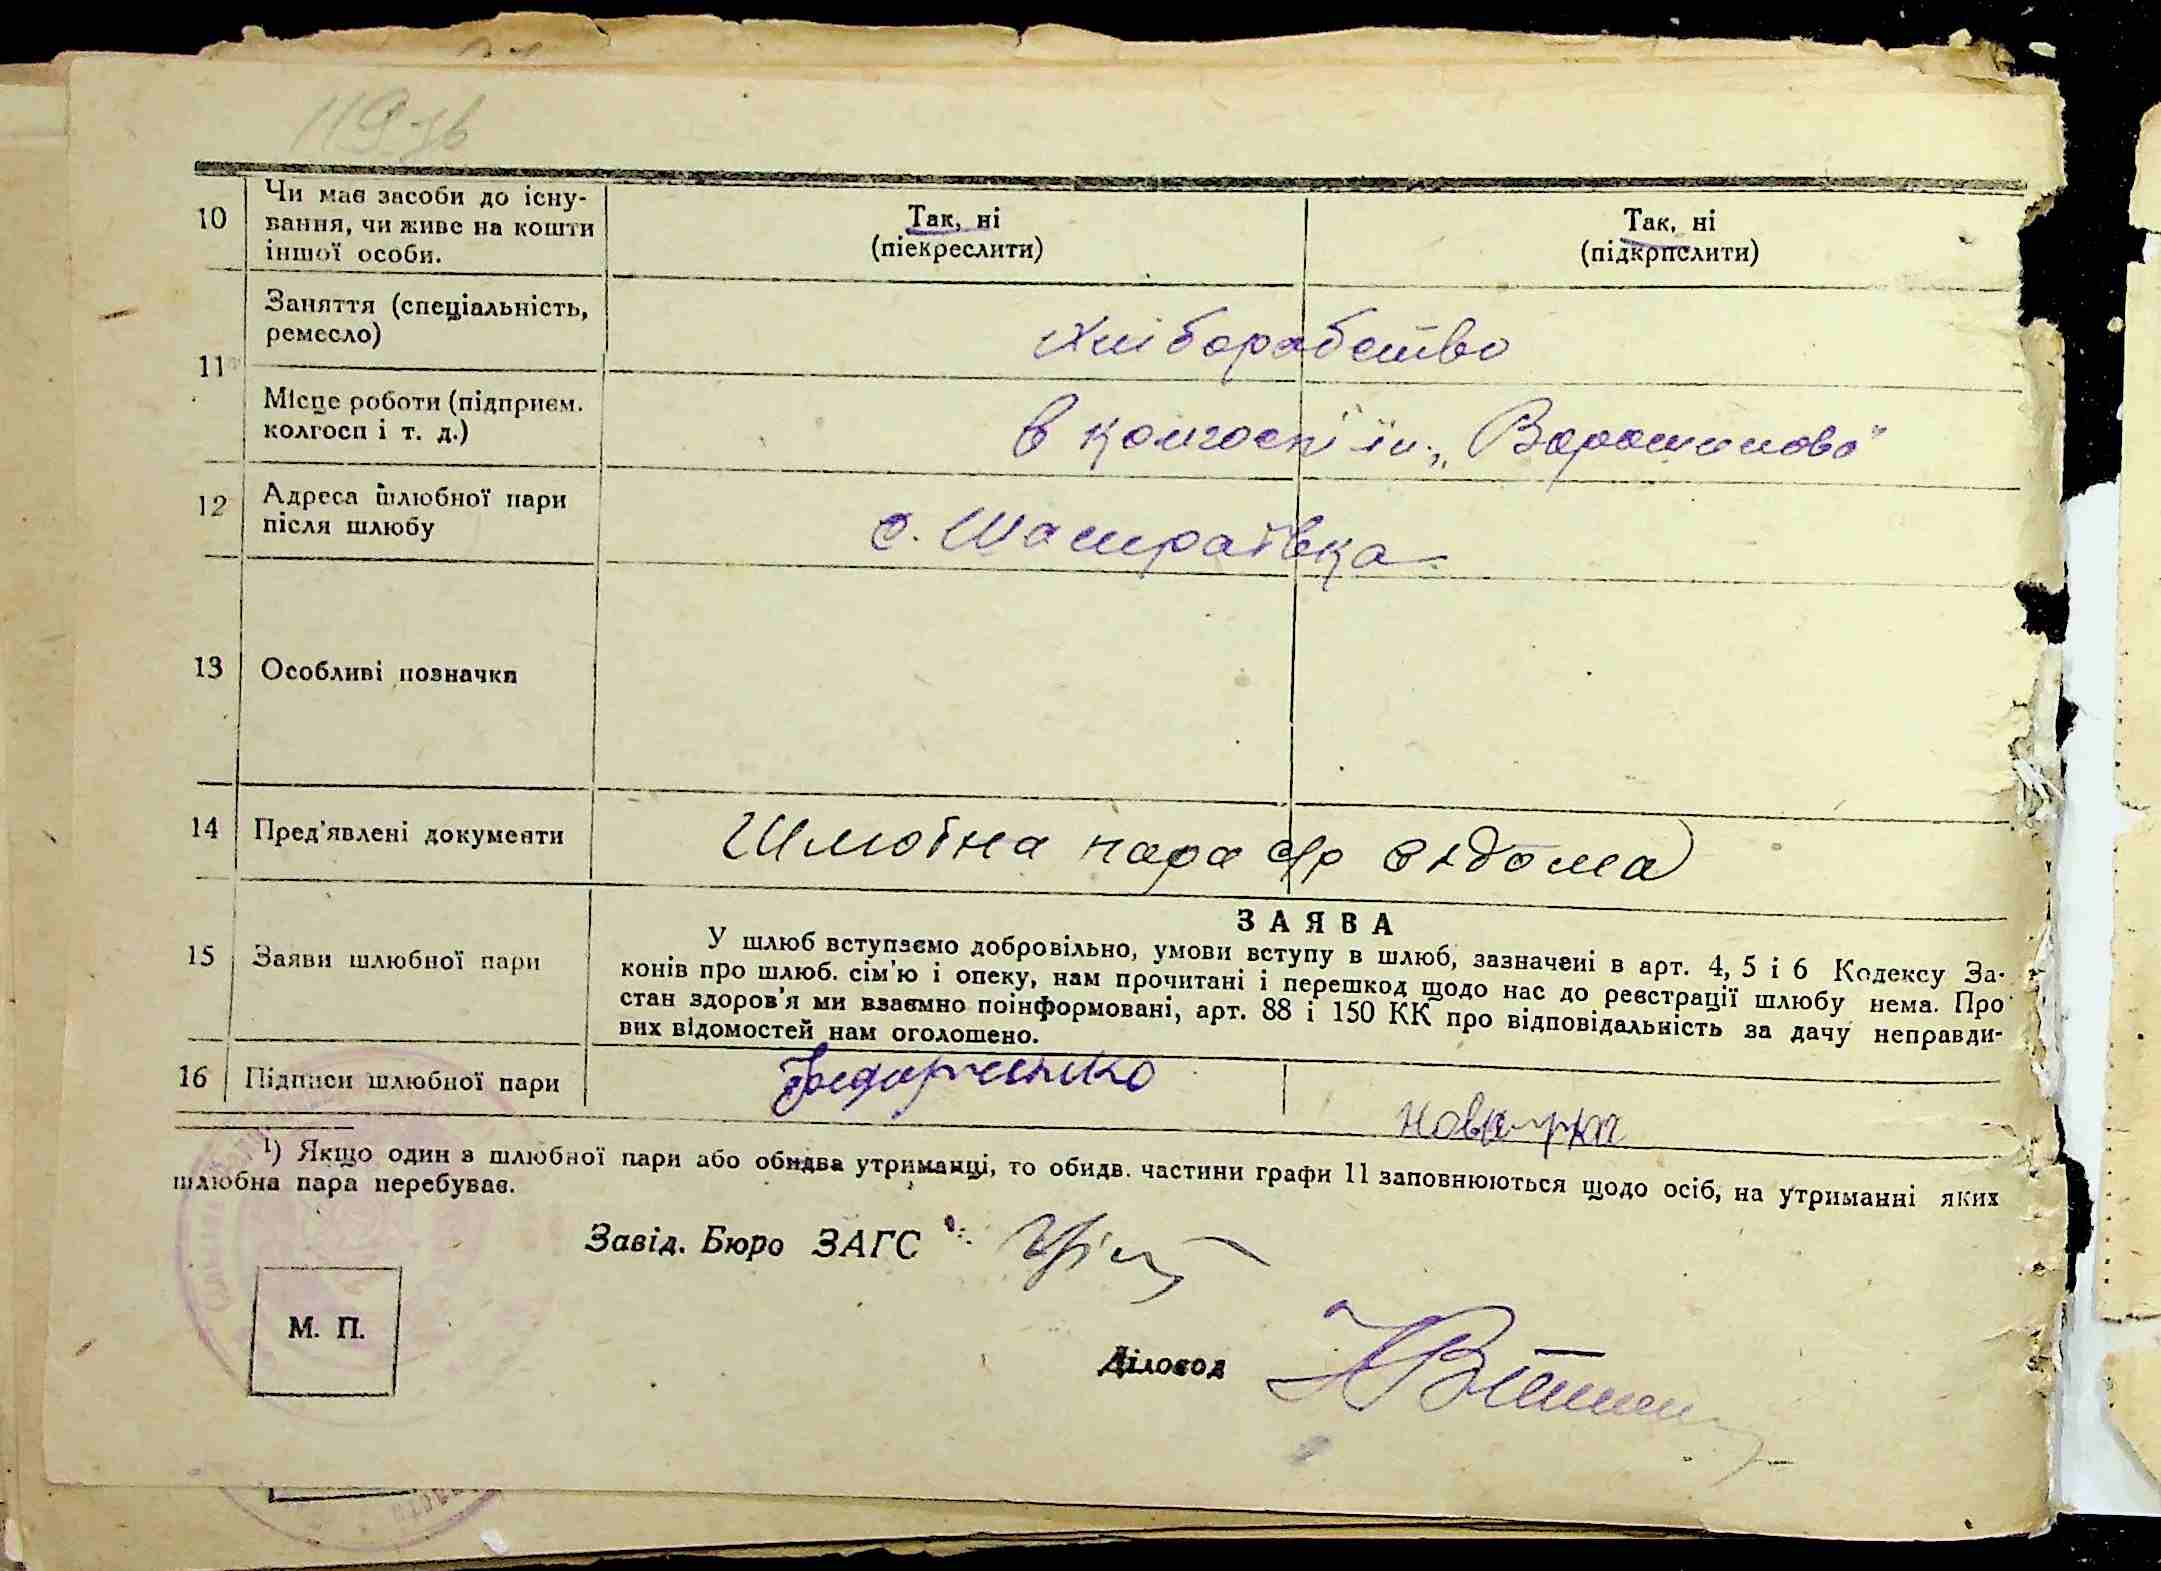 119 зв
10
Чи має засоби до існу-
вання, чи живе на кошти
іншої особи.
Так, ні
(піекреслити)
Так, ні
(підкрпслити)
11
Заняття (спеціальність,
ремесло)
хліборобство
Місце роботи (підприєм.
колгосп і т. д.)
в колгоспі ім. „Ворошилова"
12
Адреса шлюбної пари
після шлюбу
с.
13
Особливі позначки
14
Пред'явлені документи
Шлюбна пара с/р відома
15
Заяви шлюбної пари
ЗАЯВА
У шлюб вступаємо добровільно, умови вступу в шлюб, зазначені в арт. 4, 5 і 6 Кодексу За-
конів про шлюб. сім'ю і опеку, нам прочитані і перешкод щодо нас до реєстрації шлюбу нема. Про
стан здоров'я ми взаємно поінформовані, арт. 88 і 150 КК про відповідальність за дачу неправди-
вих відомостей нам оголошено.
16
Підписи шлюбної пари
Федорченко
1) Якщо один з шлюбної пари або обидва утриманці, то обидв. частини графи 11 заповнюються щодо осіб, на утриманні яких
шлюбна пара перебуває.
Завід. Бюро ЗАГС
М. П.
Діловод